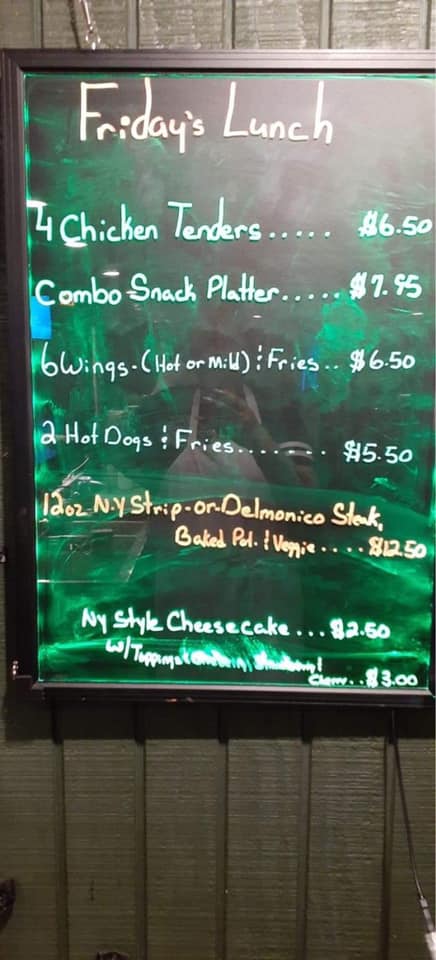 Friday's Lunch
4 Chicken Tenders ..... $6.50
Combo Snack Platter ..... $7.95
6 Wings - (Hot or Mild) & Fries .. $6.50
2 Hot Dogs & Fries ....... $5.50
12oz N.Y Strip -or- Delmonico Steak,
Baked Pot. & Veggie .... $12.50
Ny Style Cheesecake ... $2.50
w/ Toppings
Cherry .. $3.00